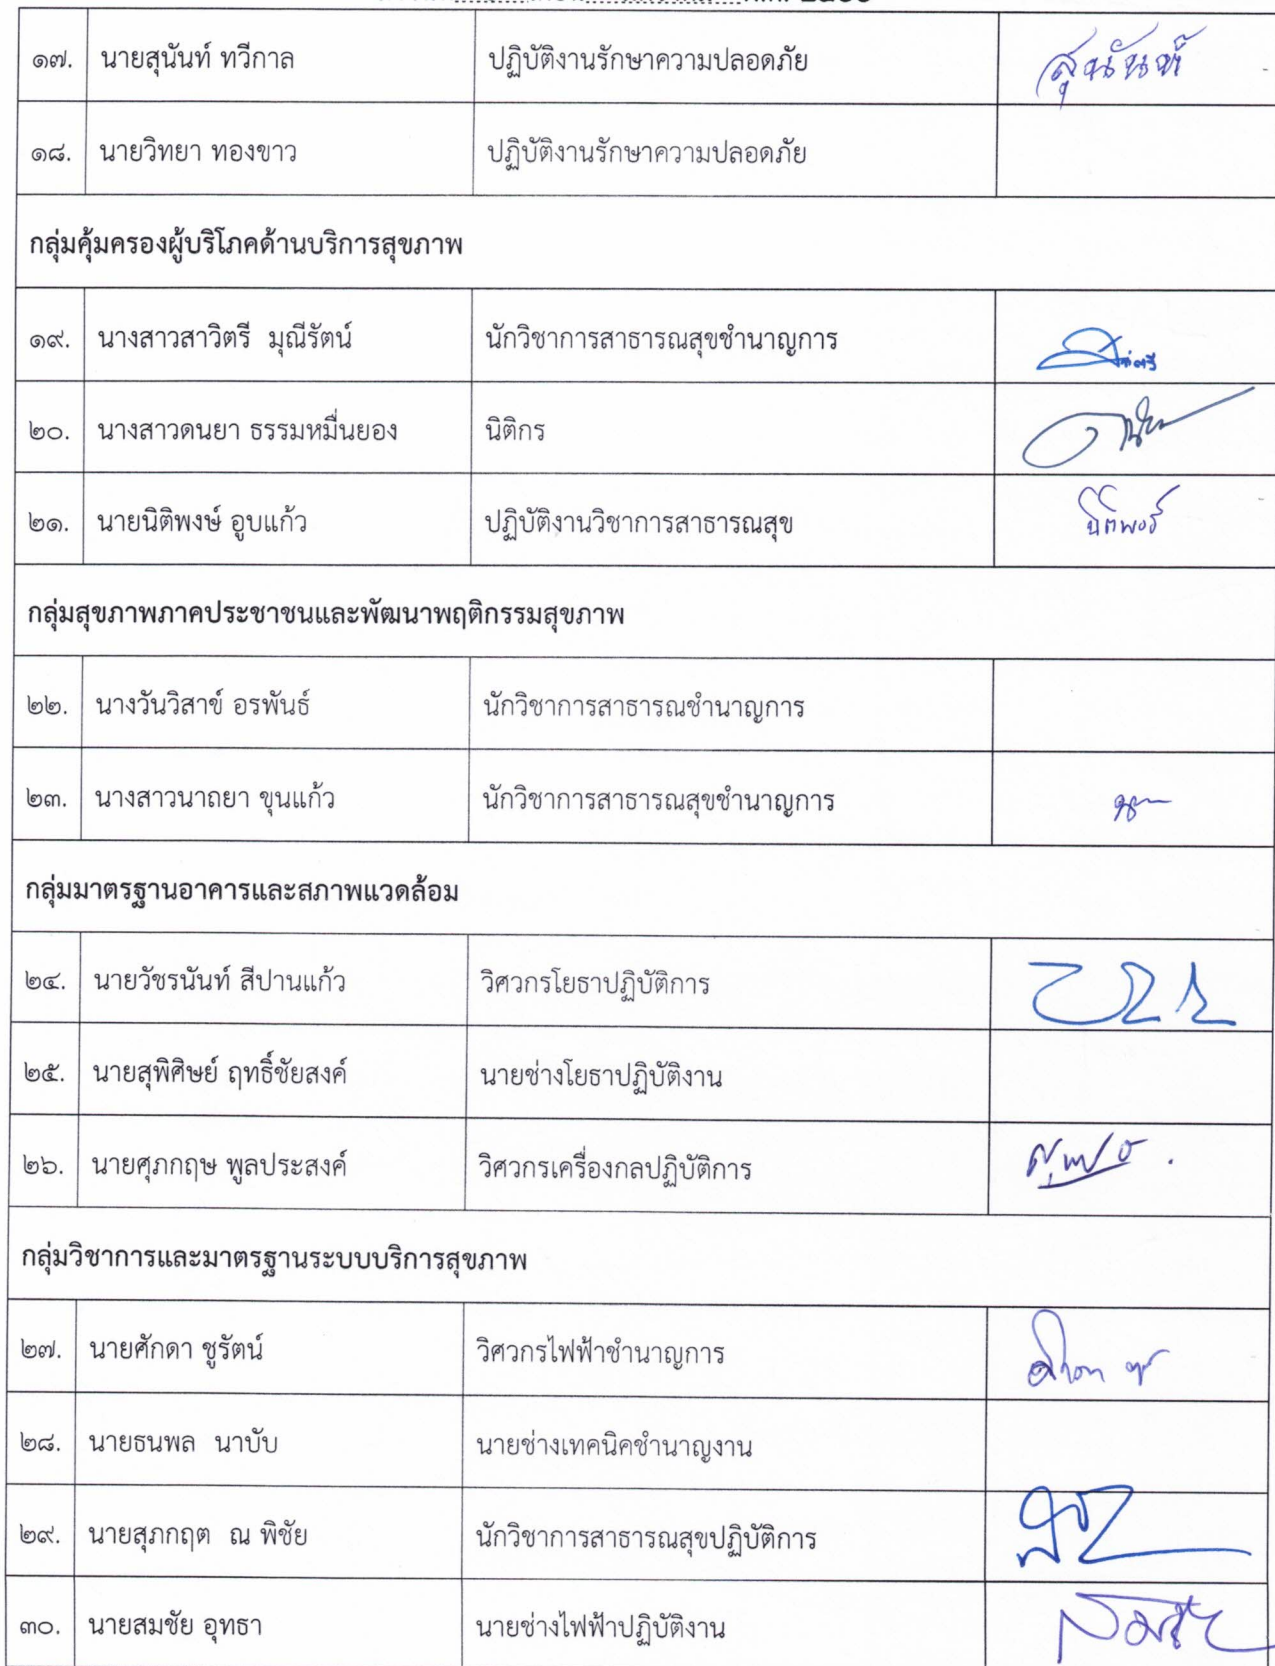 ๑๗. นายสุนันท์ ทวีกาล ปฏิบัติงานรักษาความปลอดภัย สุนันท์
๑๘. นายวิทยา ทองขาว ปฏิบัติงานรักษาความปลอดภัย
กลุ่มคุ้มครองผู้บริโภคด้านบริการสุขภาพ
๑๙. นางสาวสาวิตรี มุณีรัตน์ นักวิชาการสาธารณสุขชำนาญการ
๒๐. นางสาวดนยา ธรรมหมื่นยอง นิติกร
๒๑. นายนิติพงษ์ อูบแก้ว ปฏิบัติงานวิชาการสาธารณสุข
กลุ่มสุขภาพภาคประชาชนและพัฒนาพฤติกรรมสุขภาพ
๒๒. นางวันวิสาข์ อรพันธ์ นักวิชาการสาธารณชำนาญการ
๒๓. นางสาวนาถยา ขุนแก้ว นักวิชาการสาธารณสุขชำนาญการ
กลุ่มมาตรฐานอาคารและสภาพแวดล้อม
๒๔. นายวัชรนันท์ สีปานแก้ว วิศวกรโยธาปฏิบัติการ
๒๕. นายสุพิศิษย์ ฤทธิ์ชัยสงค์ นายช่างโยธาปฏิบัติงาน
๒๖. นายศุภกฤษ พูลประสงค์ วิศวกรเครื่องกลปฏิบัติการ
กลุ่มวิชาการและมาตรฐานระบบบริการสุขภาพ
๒๗. นายศักดา ชูรัตน์ วิศวกรไฟฟ้าชำนาญการ
๒๘. นายธนพล นาบับ นายช่างเทคนิคชำนาญงาน
๒๙. นายสุภกฤต ณ พิชัย นักวิชาการสาธารณสุขปฏิบัติการ
๓๐. นายสมชัย อุทธา นายช่างไฟฟ้าปฏิบัติงาน